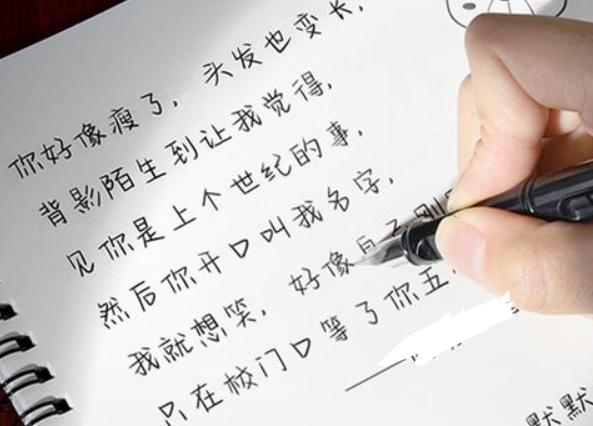 你好像瘦了，头发也变长，
背影陌生到让我觉得，
见你是上个世纪的事，
然后你开口叫我名字，
我就想笑，好像自
只在校门口等了你五
默默